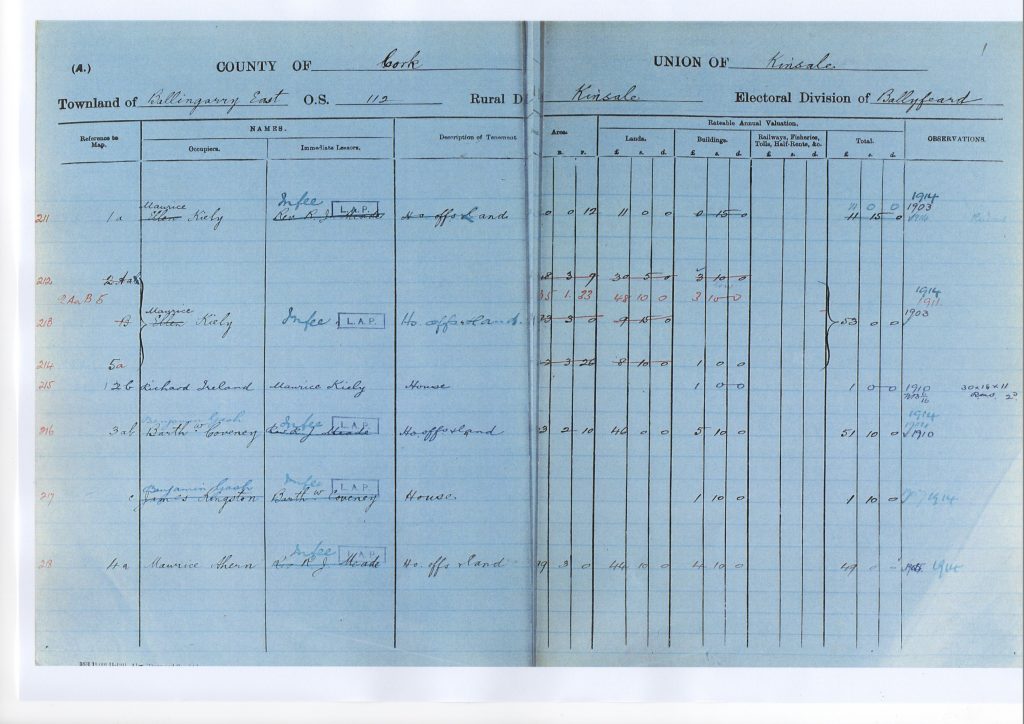 (A.) COUNTY OF Cork UNION OF Kinsale 1
Townland of Ballingarry East O.S. 112 Rural D Kinsale Electoral Division of Ballyfeard
Reference to Map. NAMES. Description of Tenement Area. Rateable Annual Valuation. OBSERVATIONS.
Occupiers. Immediate Lessors. Lands. Buildings. Railways, Fisheries, Tolls, Half-Rents, &c. Total.
R. P. £ s. d. £ s. d. £ s. d. £ s. d.
1914
Maurice Infee 11 0 0 1903
211 1a Ellen Kiely Rev R J Meade L.A.P. Ho offs & Land 0 0 12 11 0 0 0 15 0 11 15 0
212 2 Aa 8 3 9 30 5 0 3 10 0
2 Aa B 5 35 1 33 48 10 0 3 10 0 1914
1911
Maurice 1903
213 B Ellen Kiely Infee L.A.P. Ho. offs & land 23 3 0 9 15 0 53 0 0
214 5a 2 3 26 8 10 0 1 0 0
215 2b Richard Ireland Maurice Kiely House 1 0 0 1 0 0 1910 30 x 16 x 11
Benjamin Gash Infee 1914
216 3 ab Barthw Coveney Rev R J Meade L.A.P. Ho offs & land 3 2 10 46 0 0 5 10 0 51 10 0 1910
Benjamin Gash Infee
217 c James Kingston Barthw Coveney L.A.P. House 1 10 0 1 10 0 1914
Infee
218 4a Maurice Ahern Rev R J Meade L.A.P. Ho. offs & land 19 3 0 44 10 0 4 10 0 49 0 0